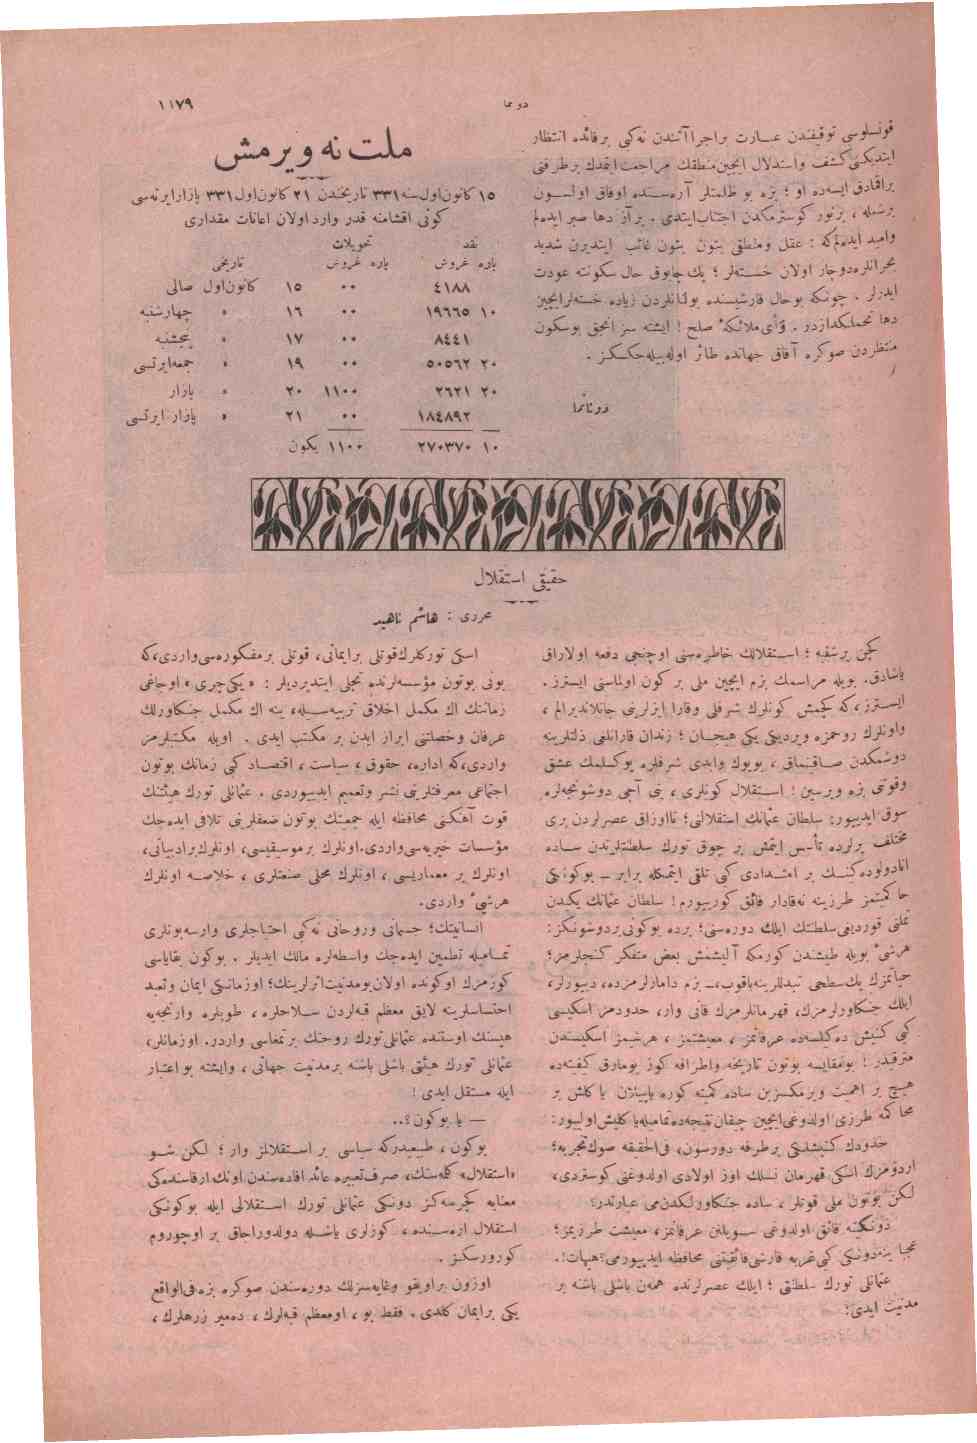 دونما
١١٧٩
قونسلوسی توقیفندن عبارت براجراآتندن نه کبی برفائده انتظار
ایتدیکنی کشف واستدلال ایچین منطقك مراجعت ایتمدك برطرفنی
براقمادق ایسه ده او ؛ بزه بو ظلمتلر آره سنده اوفاق اولسون
برشعله ، برنور کوسترمکدن اجتناب ایتدی . براز دها صبر ایده لم
وامید ایده لم که : عقل ومنطقی بتون بتون غائب ایتدیرن شدید
بحرانلره دوچار اولان خسته لر ؛ پك چابوق حال سکونته عودت
ایدرلر . چونکه بوحال قارشیسنده بولنانلردن زیاده خسته لر ایچین
دها تحملکدازدر . وأی ملائکه صلح ! ایشته سز انجق بوسکون
منتظردن صوکره آفاق جهانده طائر اوله بیله جکسکز .
دونانما
ملت نه ویرمش
١٥ کانون اول سنه ٣٣١ تاریخندن ٢١ کانون اول ٣٣١ پازار ایرته سی
کونی اقشامنه قدر وارد اولان اعانات مقداری
نقد تحویلات
پاره غروش پاره غروش تاریخی
٤١٨٨ ٠٠ ١٥ کانون اول صالی
١٠ ١٩٦٦٥ ٠٠ ١٦ » چهارشنبه
٨٤٤١ ٠٠ ١٧ » پنجشنبه
٢٠ ٥٠٥٦٢ ٠٠ ١٩ » جمعه ایرتسی
٢٠ ٢٦٢١ ١١٠٠ ٢٠ » پازار
١٨٤٨٩٢ ٠٠ ٢١ » پازار ایرتسی
١٠ ٢٧٠٣٧٠ ١١٠٠ یکون
حقیقی استقلال
محرری : هاشم ناهید
کچن برشقبه ؛ استقلالك خاطره سنی اوچنجی دفعه اولاراق
یاشادق. بویله مراسمك بزم ایچین ملی بر کون اولماسنی ایسترز.
ایسترز، که کچمش کونلرك شرفلی وقارا ایزلرینی جانلاندیرالم ،
واونلرك روحمزه ویردیکی یکی هیجان ؛ زندان قارانلغی ذلتلرینه
دوشمکدن صاقینماق ، بویوك وابدی شرفلره یوکسلمك عشق
وقوتنی بزه ویرسین ! استقلال کونلری ، بنی آجی دوشونجه لره
سوق ایدییور: سلطان عثمانك استقلالنی؛ تااوزاق عصرلردن بری
مختلف یرلرده تأسس ایتمش بر چوق تورك سلطنتلرندن ساده
انادولوده کنك بر امتدادی کبی تلقی ایتمکله برابر – بوکونکی
حاکمیتمز طرزینه نه قادار فائق کورییورم ! سلطان عثمانك یکیدن
تملنی قوردیغی سلطنتك ایلك دوره سنی؛ برده بوکونی بردوشونکز:
هرشیء بویله طیشندن کورمکه آلیشمش بعض متفکر کنجلرمز؛
حیاتمزك پك سطحی تبدللرینه باقوب،ـ بزم دامارلرمزده، دییورلر،
ایلك جنکاورلرمزك، قهرمانلرمزك قانی وار، حدودمز اسکیسی
کبی کنیش ده کیلسه ده عرفانمز ، معیشتمز ، هرشیمز اسکیسندن
مترقیدر ! بومقایسه بوتون تاریخه واطرافه کوز یومارق کیفنده
هیچ بر اهمیت ویرمکسزین ساده کمیته کوره یاپیلان یا کلش بر
محاکمه طرزی اولدوغی ایچین چیقان نتیجه ده تمامیله یا کلیش اولییور:
حدودك کنیشلیکی برطرفه دورسون، فی الحقیقه صوك تجربه؛
اردومزك اسکی قهرمان نسلك اوز اولادی اولدوغنی کوستردی،
لکن بوتون ملی قوتلر ، ساده جنکاورلکدن می عبارتدر؟
دونکینه فائق اولدوغی سویلنن عرفانمز، معیشت طرزیمز؛
عجبا بنه دونکی کبی غربه قارشی فائقیتنی محافظه ایدییورمی؟هیهات!.
عثمانلی تورك سلطنتی ؛ ایلك عصرلرنده همه ن باشلی باشنه بر
مدنیت ایدی:
اسکی تورکلرك قوتلی برایمانی، قوتلی برمفکوره سی واردی،که
بونی بوتون مؤسسه لرنده تجلی ایتدیردیلر : «یکی چری» اوجاغی
زماننك اك مکمل اخلاق تربیه سیله، ینه اك مکمل جنکاورلك
عرفان وخصلتنی ابراز ایدن بر مکتب ایدی . اویله مکتبلرمز
واردی،که اداره، حقوق ، سیاست ، اقتصاد کبی زمانك بوتون
اجتماعی معرفتلرینی نشر وتعمیم ایدییوردی . عثمانلی تورك هیئتنك
قوت آهنکنی محافظه ایله جمعیتك بوتون ضعفلرینی تلافی ایده جك
مؤسسات خیریه سی واردی.اونلرك برموسیقیسی، اونلرك برادبیاتی،
اونلرك بر معماریسی ، اونلرك محلی صنعتلری ، خلاصه اونلرك
هرشیء واردی.
انسانیتك؛ جسمانی وروحانی نه کبی احتیاجلری وارسه بونلری
تمامیله تطمین ایده جك واسطه لره مالك ایدیلر . بوکون بقایاسی
کوزمزك اوکونده اولان بومدنیت اثرلرینك؛ اوزمانکی ایمان وتعبد
احتساسلرینه لایق معظم قبه لردن سلاحلره ، طوپلره وارنجه یه
هپسنك اوستنده عثمانلی تورك روحنك برتمغاسی واردر. اوزمانلر،
عثمانلی تورك هیئتی باشلی باشنه برمدنیت جهانی ، وایشته بو اعتبار
ایله مستقل ایدی !
— یا بوکون ؟..
بوکون ، طبیعیدرکه سیاسی بر استقلالمز وار ؛ لکن شو
«استقلال» کله سنك، صرف تعبیره عائد افاده سندن اونك ارقاسنده کی
معنایه کچرسه کز دونکی عثمانلی تورك استقلالی ایله بوکونکی
استقلال اره سنده ، کوزلری یاشله دولدوراجاق بر اوچوروم
کورورسکز .
اوزون براویقو وغایه سزلك دوره سندن صوکره بزه فی الواقع
یکی برایمان کلدی . فقط بو ، اومعظم قبه لرك ، ده میر زرهلرك ،